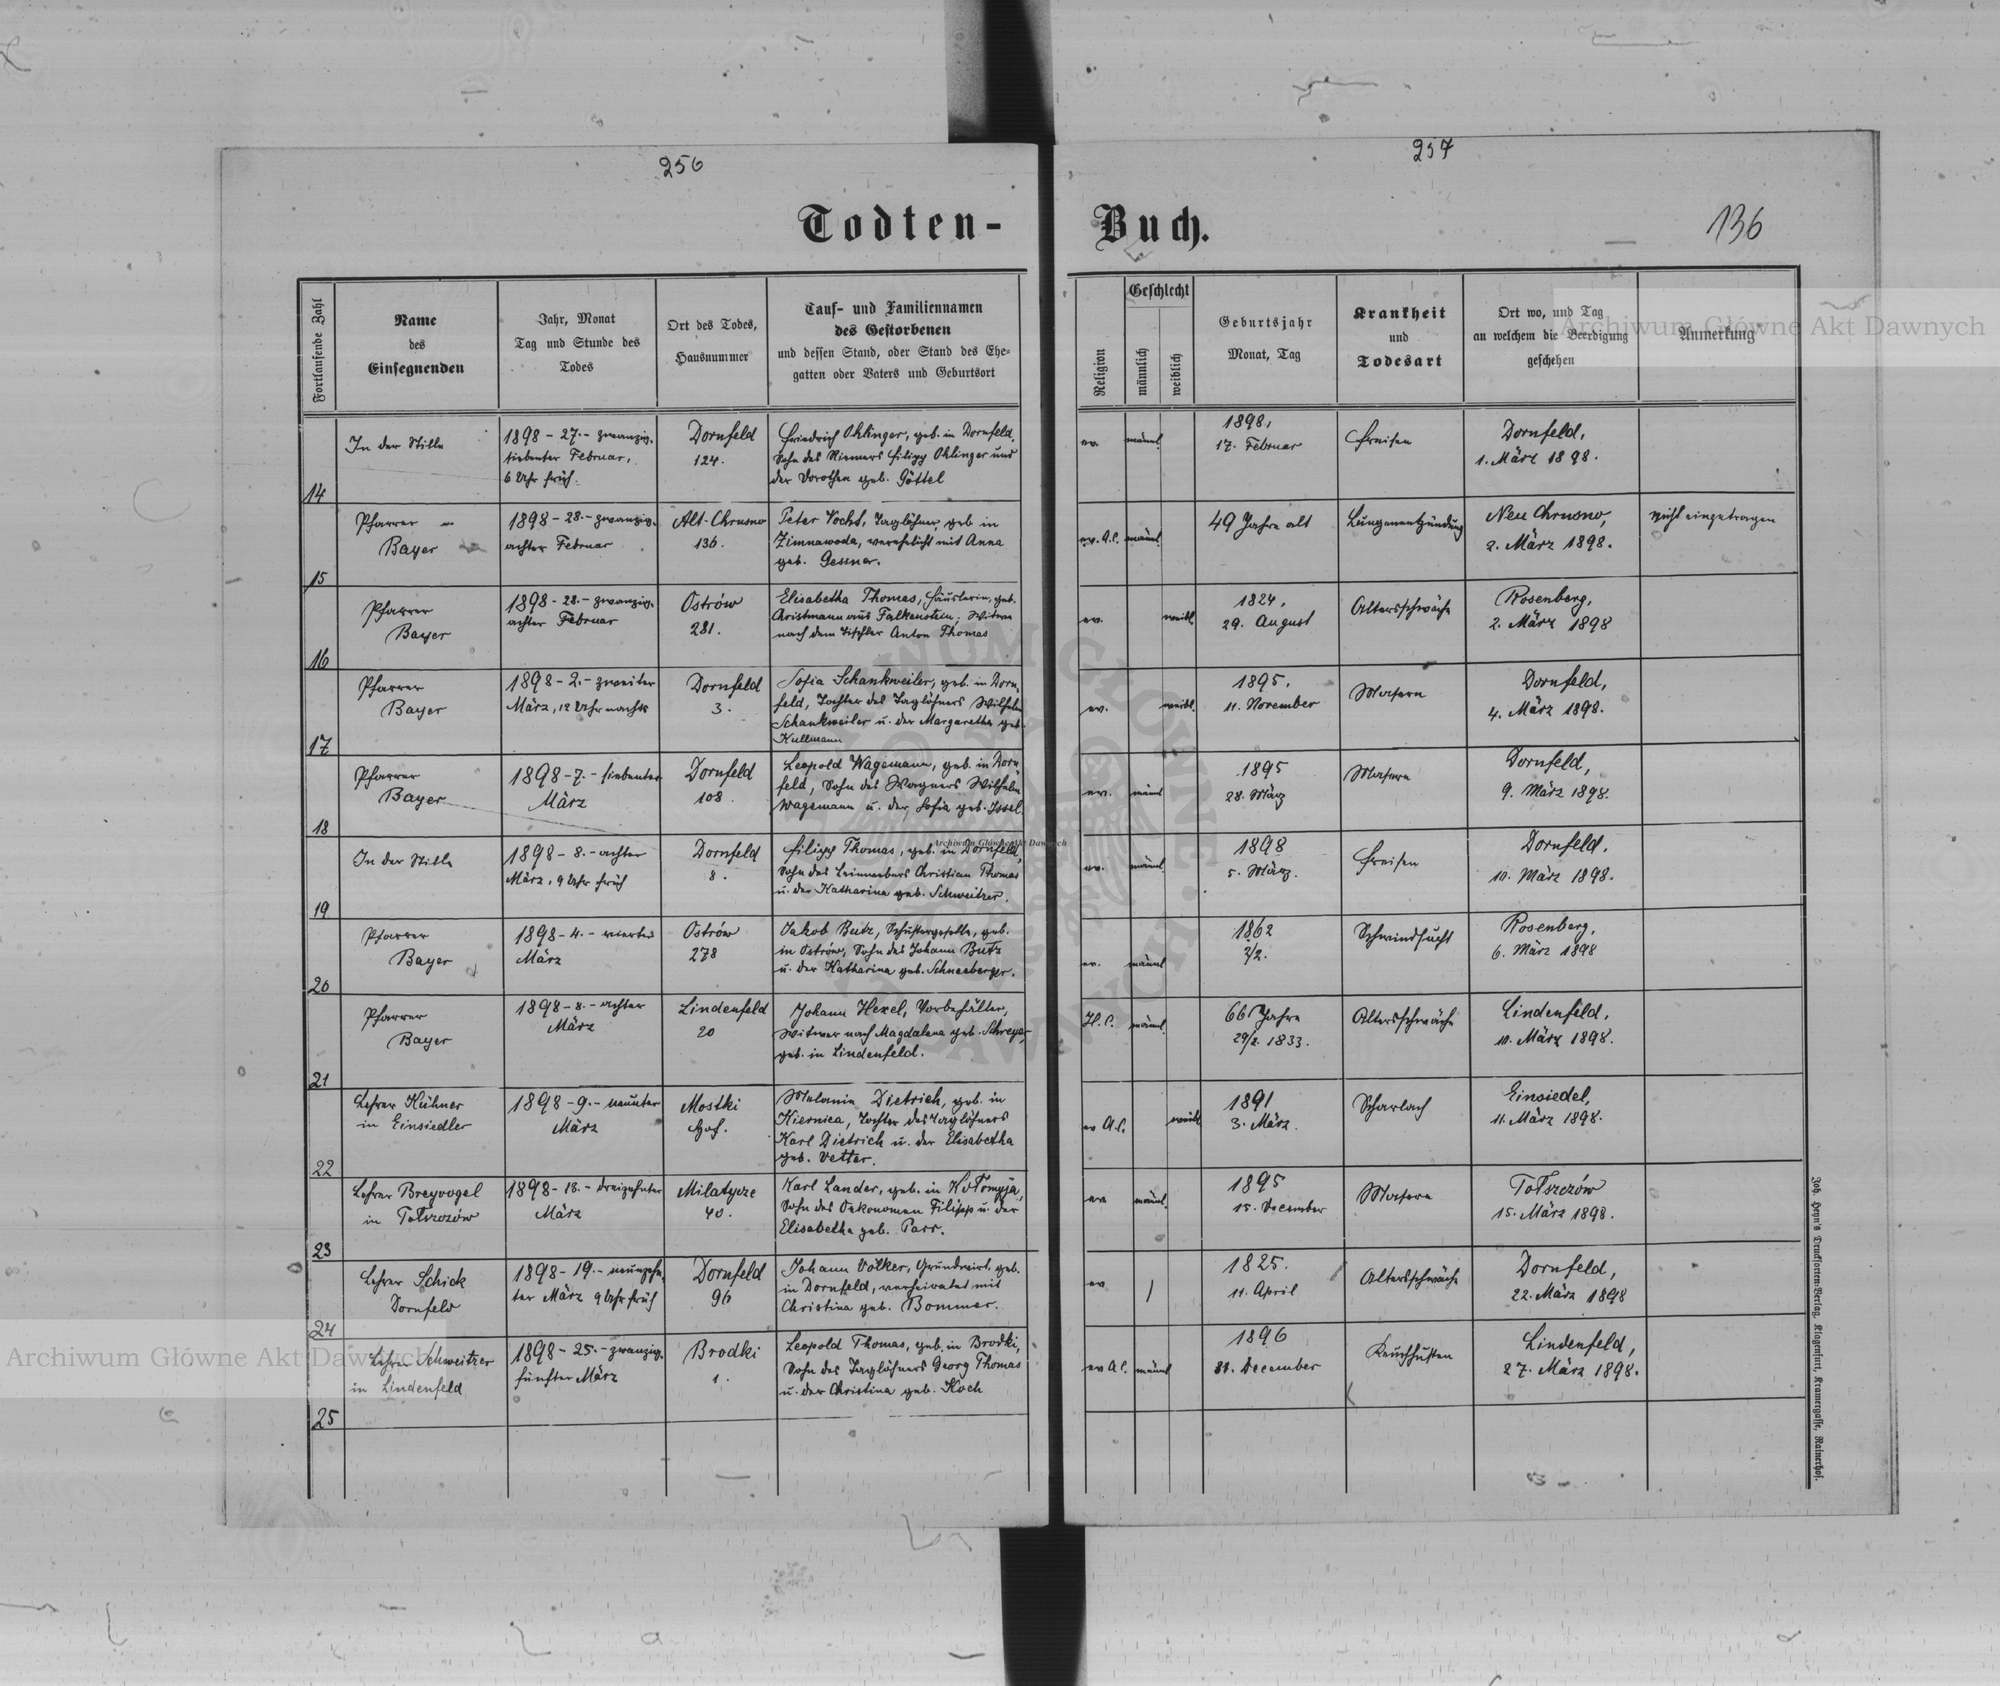 256
257
136
Todten-
Buch.
Fortlaufende Zahl
Name
des
Einsegnenden
Jahr, Monat
Tag und Stunde des
Todes
Ort des Todes,
Hausnummer
Tauf- und Familiennamen
des Gestorbenen
und dessen Stand, oder Stand des Ehe-
gatten oder Vaters und Geburtsort
Religion
Geschlecht
männlich
weiblich
Geburtsjahr
Monat, Tag
Krankheit
und
Todesart
Ort wo, und Tag
an welchem die Beerdigung
geschehen
Anmerkung
14
In der Stille
1898 - 27.- zwanzig-
siebenter Februar,
6 Uhr früh.
Dornfeld
124.
Friedrich Ohlinger, geb. in Dornfeld,
Sohn des Riemers Filipp Ohlinger und
der Dorothea geb. Göttel
ev.
männl.
1898,
17. Februar
Fraisen
Dornfeld,
1. März 1898.
15
Pfarrer
Bayer
1898 - 28.- zwanzig-
achter Februar
Alt-Chrusno
136.
Peter Vocht, Taglöhner, geb. in
Zimnawoda, verehelicht mit Anna
geb. Gessner.
ev. A.C.
männl.
49 Jahre alt
Lungenentzündung
Neu Chrusno,
2. März 1898.
nicht eingetragen
16
Pfarrer
Bayer
1898 - 28.- zwanzig-
achter Februar
Ostrów
281.
Elisabetha Thomas, Häuslerin, geb.
Christmann aus Falkenstein, Witwe
nach dem Tischler Anton Thomas
ev.
weibl.
1824,
29. August
Altersschwäche
Rosenberg,
2. März 1898
17
Pfarrer
Bayer
1898 - 2.- zweiter
März, 12 Uhr nachts
Dornfeld
3.
Sofia Schankweiler, geb. in Dorn-
feld, Tochter des Taglöhners Wilhelm
Schankweiler u. der Margaretha geb.
Kullmann
ev.
weibl.
1895.
11. November
Masern
Dornfeld,
4. März 1898.
18
Pfarrer
Bayer
1898 - 7.- siebenter
März
Dornfeld
108.
Leopold Wagemann, geb. in Dorn-
feld, Sohn des Wagners Wilhelm
Wagemann u. der Sofia geb. Issel
ev.
männl
1895
28. März
Masern
Dornfeld,
9. März 1898.
19
In der Stille
1898 - 8.- achter
März, 9 Uhr früh
Dornfeld
8.
Filipp Thomas, geb. in Dornfeld,
Sohn des Leinwebers Christian Thomas
u. der Katharina geb. Schweitzer.
ev.
männl.
1898
5. März.
Fraisen
Dornfeld.
10. März 1898.
20
Pfarrer
Bayer
1898 - 4.- vierter
März
Ostrów
278
Jakob Butz, Schustergeselle, geb.
in Ostrów, Sohn des Johann Butz
u. der Katharina geb. Schneeberger.
ev.
männl
1862
2/2.
Schwindsucht
Rosenberg,
6. März 1898
21
Pfarrer
Bayer
1898 - 8.- achter
März
Lindenfeld
20
Johann Hexel, Vorbehälter,
Witwer nach Magdalena geb. Schreyer,
geb. in Lindenfeld.
H.C.
männl.
66 Jahre
29/2. 1833.
Altersschwäche
Lindenfeld,
10. März 1898.
22
Lehrer Kühner
in Einsiedler
1898 - 9.- neunter
März
Mostki
Hof.
Melania Dietrich, geb. in
Kiernica, Tochter des Taglöhners
Karl Dietrich u. der Elisabetha
geb. Vetter.
ev A.C.
weibl
1891
3. März.
Scharlach
Einsiedel,
11. März 1898.
23
Lehrer Breyvogel
in Tołszczów
1898 - 13.- dreizehnter
März
Milatycze
40.
Karl Lander, geb. in Kołomyja,
Sohn des Oekonomen Filipp u. der
Elisabetha geb. Parr.
ev.
männl.
1895
15. December
Masern
Tołszczów
15. März 1898.
24
Lehrer Schick
Dornfeld
1898 - 19.- neunzehn-
ter März 9 Uhr früh
Dornfeld
96
Johann Völker, Grundwirt, geb.
in Dornfeld, verheiratet mit
Christina geb. Bommer.
ev
1825.
11. April
Altersschwäche
Dornfeld,
22. März 1898
25
Lehrer Schweitzer
in Lindenfeld
1898 - 25.- zwanzig-
fünfter März
Brodki
1.
Leopold Thomas, geb. in Brodki,
Sohn des Taglöhners Georg Thomas
u. der Christina geb. Koch
ev A.C.
männl
1896
31. December
Keuchhusten
Lindenfeld,
27. März 1898.
Joh. Heyn's Drucksorten-Verlag, Klagenfurt, Kramergasse, Rainerhof.
Archiwum Główne Akt Dawnych
Archiwum Główne Akt Dawnych
Archiwum Główne Akt Dawnych